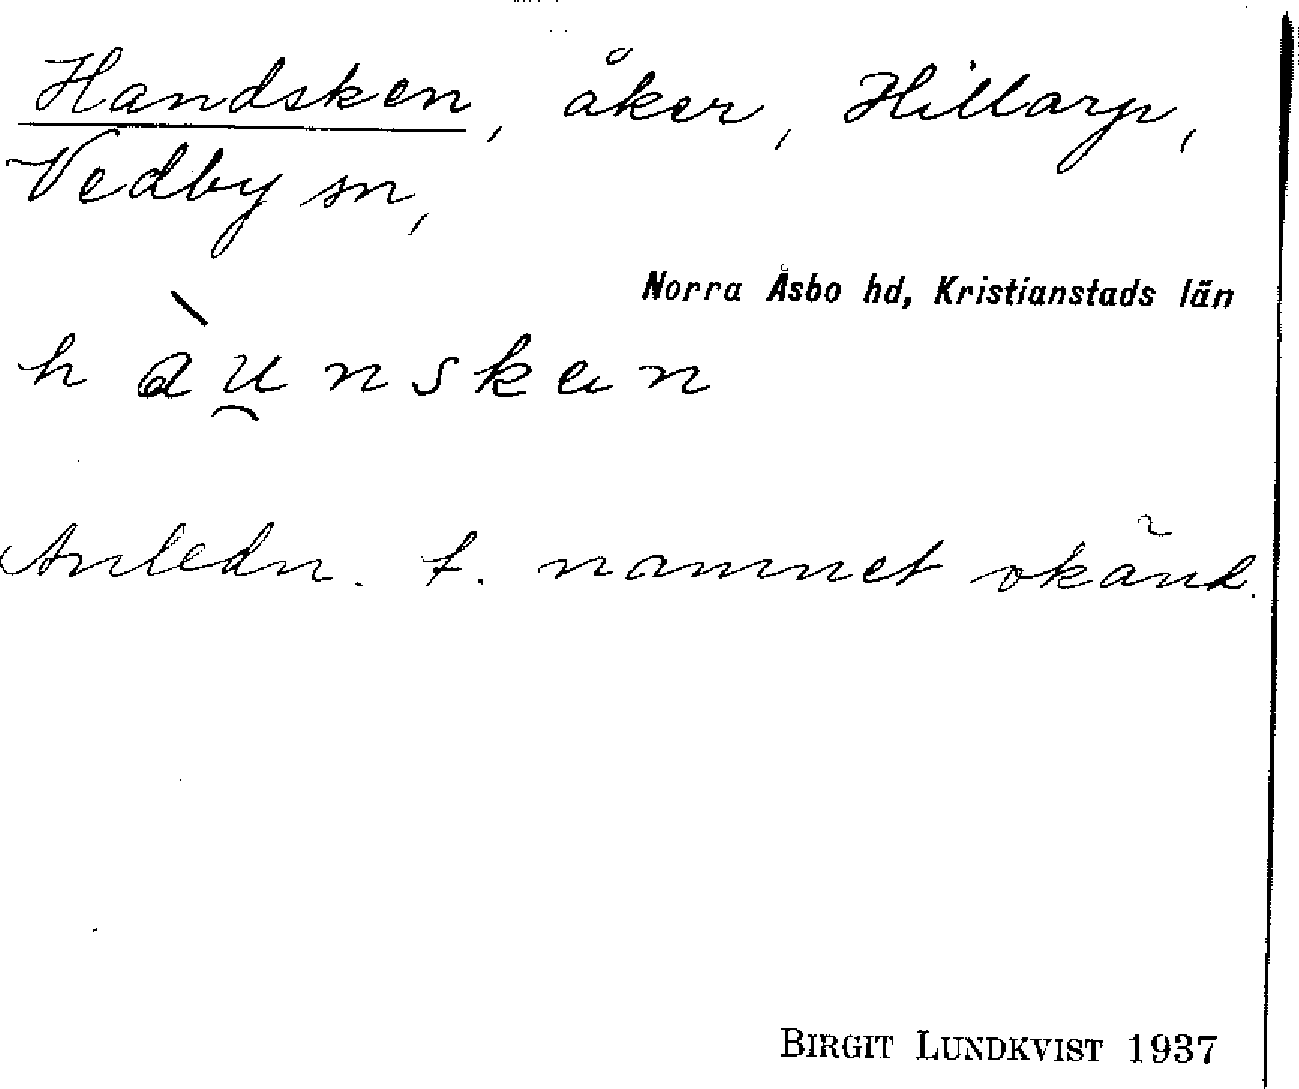 Handsken, åker, Hillarp,
Vedby sn,
Norra Åsbo hd, Kristianstads län
hàu̯nskan
Anledn. t. namnet okänd.
BIRGIT LUNDKVIST 1937